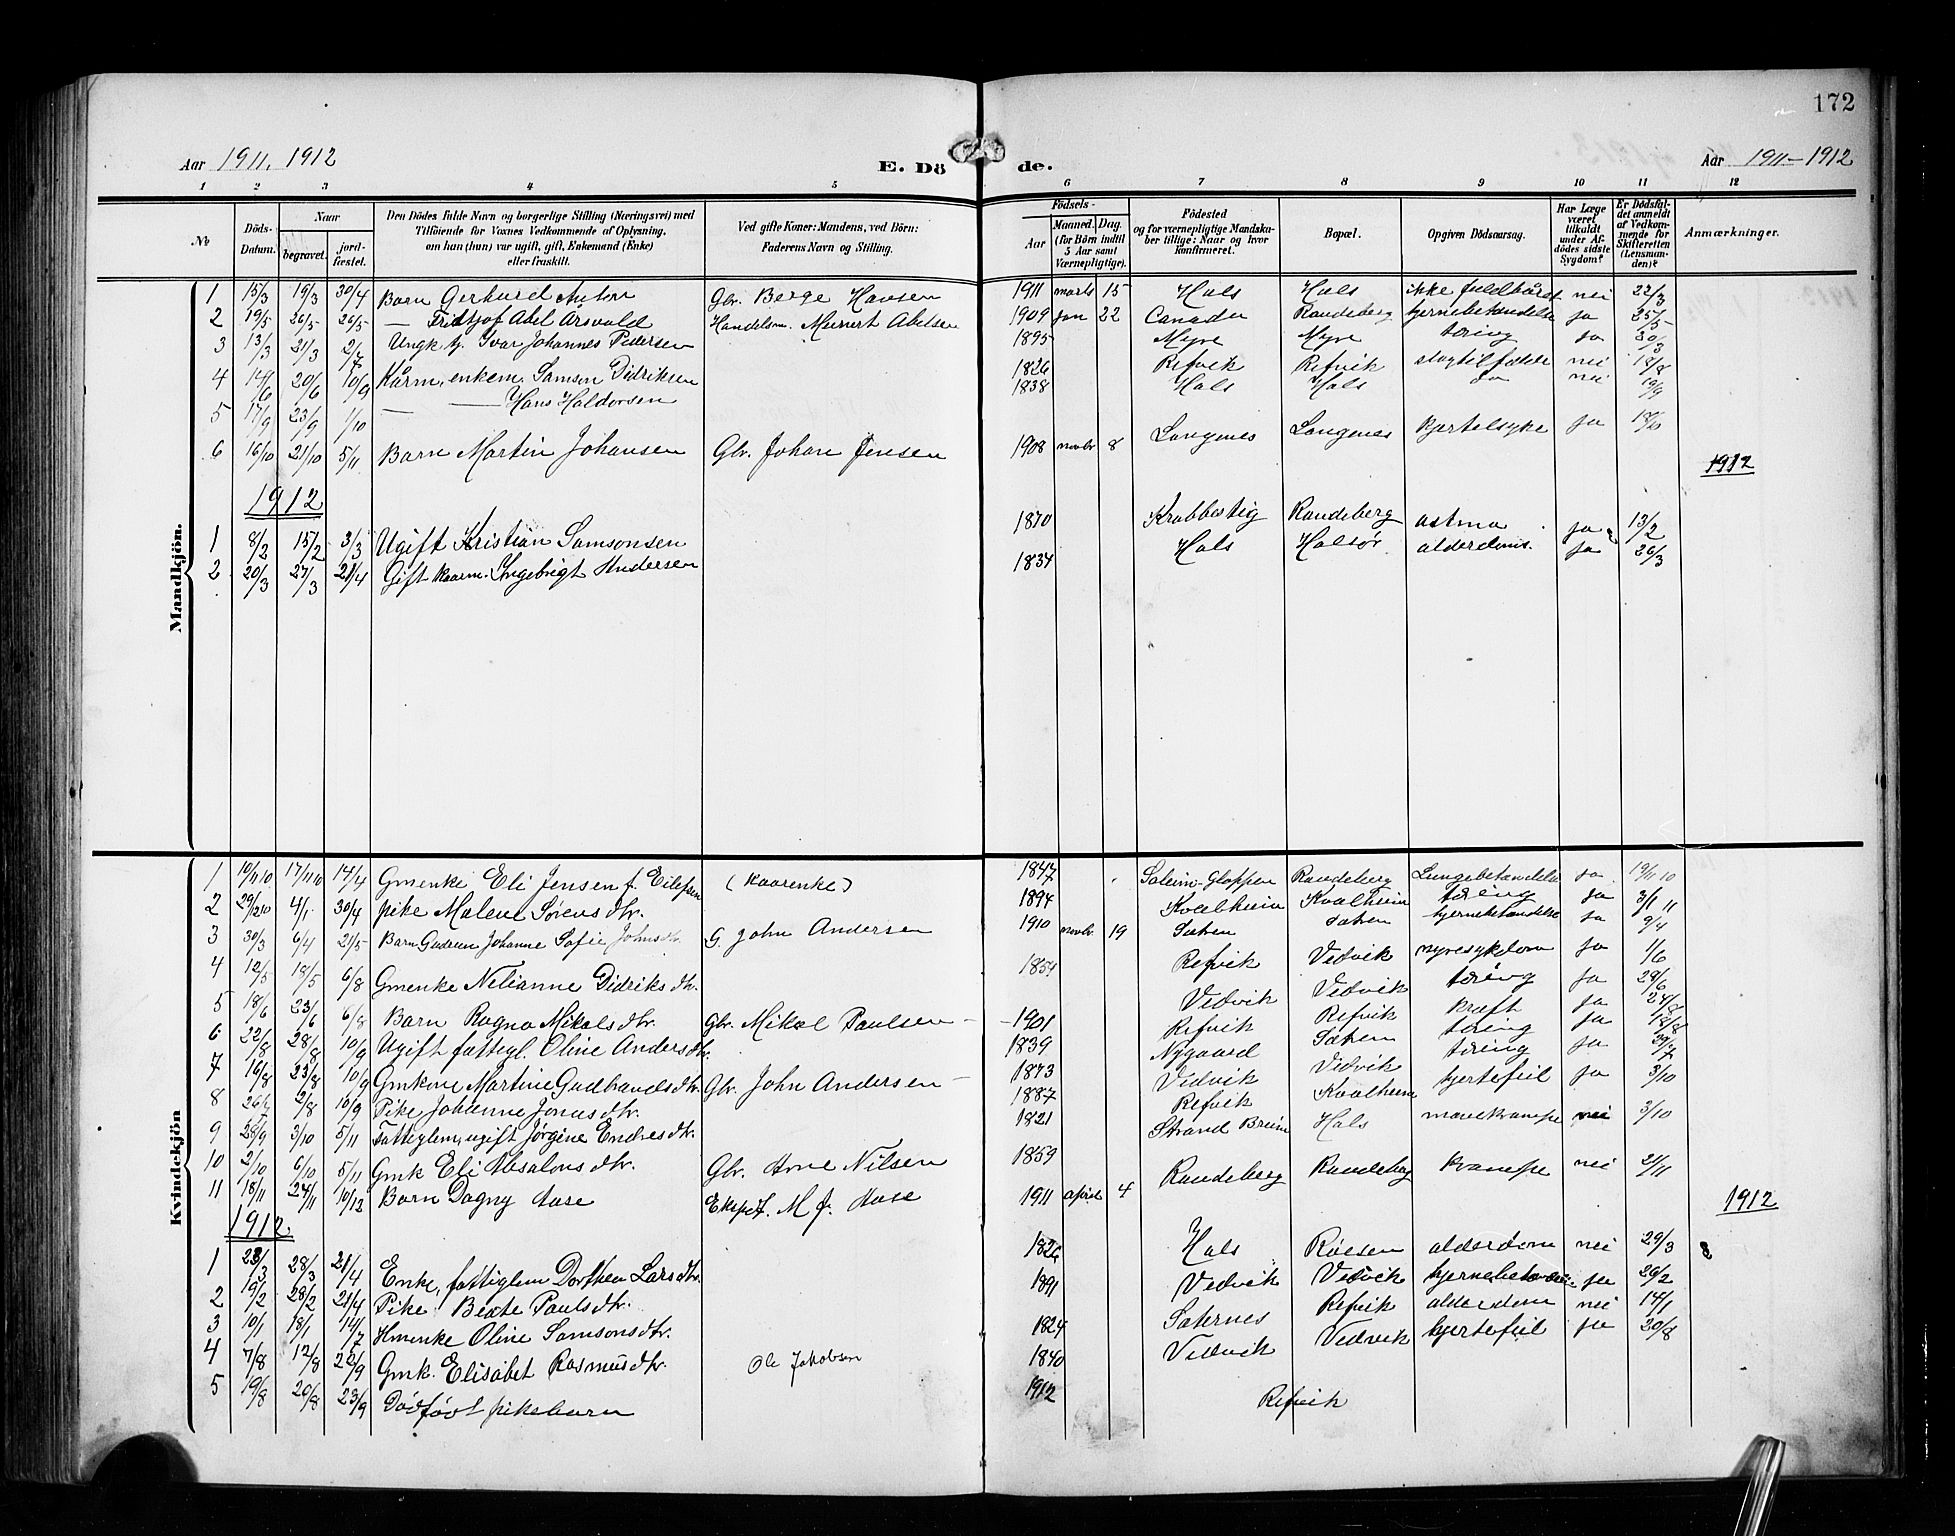 172
Aar 1911. 1912
E. Dö
de.
Aar 1911-1912
1 2 3 4 5 6 7 8 9 10 11 12
No
Döds-Datum.
Naar
begravet.
jordfæstet.
Den Dödes fulde Navn og borgerlige Stilling (Næringsvei) med Tilföiende for Voxnes Vedkommende af Oplysning, om han (hun) var ugift, gift, Enkemand (Enke) eller fraskilt.
Ved gifte Koner: Mandens, ved Börn: Faderens Navn og Stilling.
Födsels-
Aar
Maaned. Dag.
(for Börn indtil 5 Aar samt Værnepligtige).
Födested og for værnepligtige Mandskaber tillige: Naar og hvor konfirmeret.
Bopæl.
Opgiven Dödsaarsag.
Har Læge været tilkaldt under Afdödes sidste Sygdom?
Er Dödsfaldet anmeldt af Vedkommende for Skifteretten (Lensmanden)?
Anmærkninger.
Mandkjön.
1 15/3 19/3 30/4 Barn Gerhard Anton Gbr. Berge Hansen 1911 marts 15 Hals Hals ikke fuldbåret nei 22/3
2 19/5 26/5 26/5 — Fridtjof Abel Årsvold Handelsm. Meinert Abelsen 1909 jan 22 Canada Raudeberg hjernebetændelse ja 25/5
3 13/3 21/3 2/7 Ungk tj. Ivar Johannes Pedersen 1895 Myre Myre tæring ja 30/3
4 14/6 20/6 10/9 Kårm, enkem. Samson Didriksen 1826 Refvik Refvik slagtilfælde nei 19/8
5 17/9 23/9 1/10 — — Hans Haldorsen 1838 Hals Hals do nei 19/9
6 16/10 21/10 5/11 Barn Martin Johansen Gbr. Johan Jensen 1908 novbr 8 Langenes Langenes kjertelsyke ja 18/10
1912
1912
1 8/2 15/2 3/3 Ugift Kristian Samsonsen 1870 Krabbestig Raudeberg astma ja 13/2
2 20/3 27/3 21/4 Gift kaarm. Ingebrigt Andersen 1834 Hals Halsør alderdoms. ja 26/3
Kvindekjön
1 10/11 10 17/11 10 14/4 Gmenke Eli Jensen f. Eilefsen (Kaarenke) 1847 Saleim-Gloppen Raudeberg Lungebetændelse ja 19/11 10
2 29/12 10 4/1 30/4 pike Malene Sørensdtr. 1894 Kvalheim Kvalheim tæring ja 3/1 11
3 30/3 6/4 21/5 Barn Gudrun Johanne Sofie Johnsdtr. G. John Andersen 1910 novbr. 19 Sætren Sætren hjernebetændelse ja 9/4
4 12/5 18/5 6/8 Gmenke Nilianne Didriksdtr. 1854 Refvik Vedvik nyresykdom ja 1/6
5 18/6 23/6 6/8 Barn Ragna Mikalsdtr. Gbr. Mikal Paulsen — 1901 Vedvik Vedvik tæring ja 28/6
6 22/8 28/8 10/9 Ugift fattigl. Oline Andersdtr. 1839 Refvik Refvik kræft ja 24/8
7 16/8 23/8 10/9 Gmkone Martine Gudbrandsdtr. Gbr. John Andersen — 1873 Nygaard Sætren tæring ja 18/8
8 26/7 2/8 10/9 Pike Johanne Jonasdtr. 1887 Vedvik Vedvik tæring ja 29/7
9 28/9 3/10 5/11 Fattiglem, ugift Jørgine Endresdtr. 1821 Refvik Kvalheim hjertefeil ja 3/10
10 2/10 6/10 5/11 Gmk Eli Absalonsdtr. Gbr. Arne Nilsen 1859 Strand Breim Hals mavekrampe nei 3/10
11 18/11 24/11 10/12 Barn Dagny Aase Ekspd. M J. Aase 1911 april 4 Raudeberg Raudeberg krampe nei 21/11
1912
1912
1 23/3 28/3 21/4 Enke, fattiglem Dorthea Larsdtr. 1826 Hals Røesen alderdom nei 29/3
2 19/2 28/2 21/4 Pike Beate Paulsdtr. 1891 Vedvik Vedvik hjernebetænde. ja 26/2
3 10/1 18/1 14/7 Hmenke Oline Samsonsdtr. 1824 Saternes Refvik alderdom nei 14/1
4 7/8 12/8 22/9 Gmk. Elisabet Rasmusdtr. Ole Jakobsen 1840 Vedvik Vedvik hjertefeil ja 20/8
5 19/8 20/8 23/9 Dødfødt pikebarn 1912 Refvik